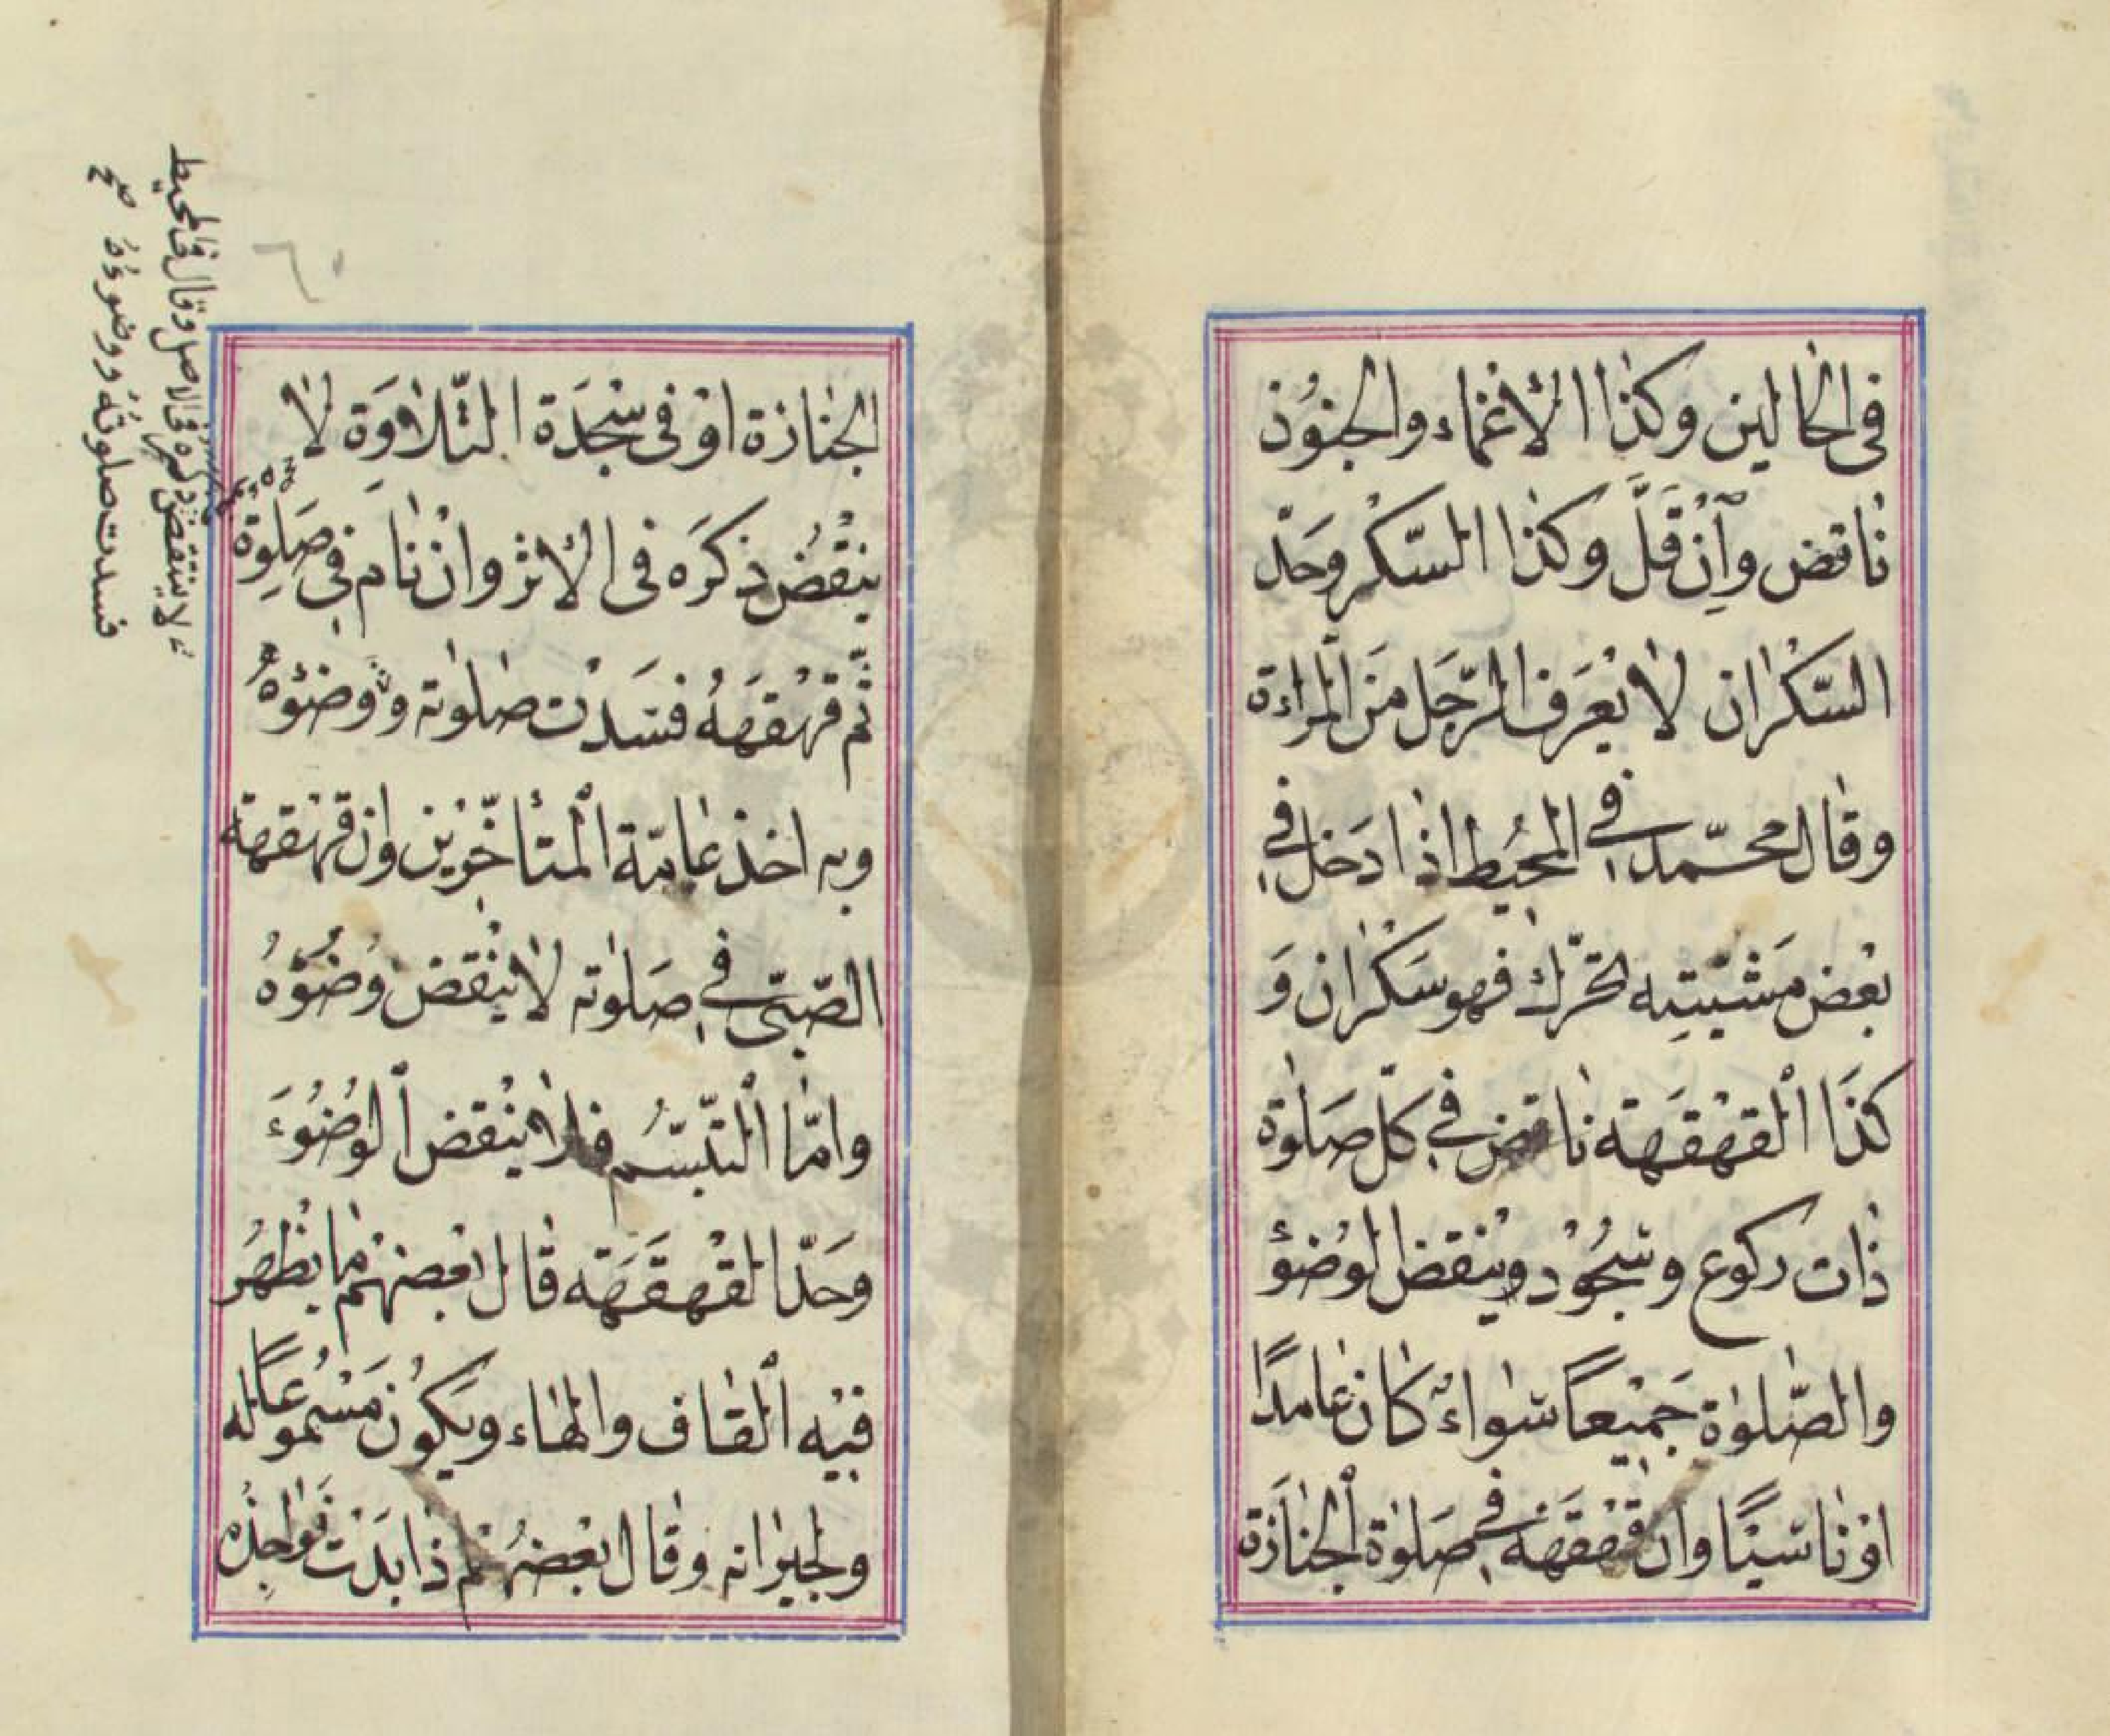 فى الحالين وكذا الاغماء والجنون
ناقض وان قلّ وكذا السّكر وحدّ
السّكران لا يعرف الرّجل من المراءة
وقال محمّد فى المحيط اذا دخل فى
بعض مشيّته تحرّك فهو سكران و
كذا القهقهة ناقض فى كلّ صلوة
ذات ركوع وسجود وينقض الوضوٴ
والصّلوة جميعاً سواء كان عامدًا
او ناسيًا وان قهقهة فى صلوة الجنازة
الجنازة او فى سجدة التّلاوة لا
ينقض ذكره فى الاثر وان نام فى صلوة
ثمّ قهقهه فسدت صلوته ووضوٴهُ
وبه اخذ عامّة المتأخّرين وان قهقهة
الصّبىّ فى صلوته لا ينقض وضوٴهُ
وامّا التّبسّم فلا ينقض الوضوٴَ
وحدّ القهقهة قال بعضهم ما يظهر
فيه القاف والهاء ويكون مسموعًا له
ولجيرانه وقال بعضهم ذا بدت نواجذه
لا ينتقض ذكره فى الاصل وقال فى المحيط
فسدت صلوته ووضوءهُ صح
٦٠